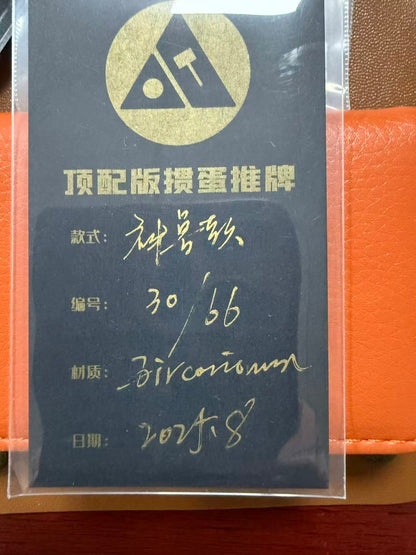 顶配版掼蛋推牌
款式: 神兽款
编号: 30/66
材质: Zirconium
日期: 2025.8